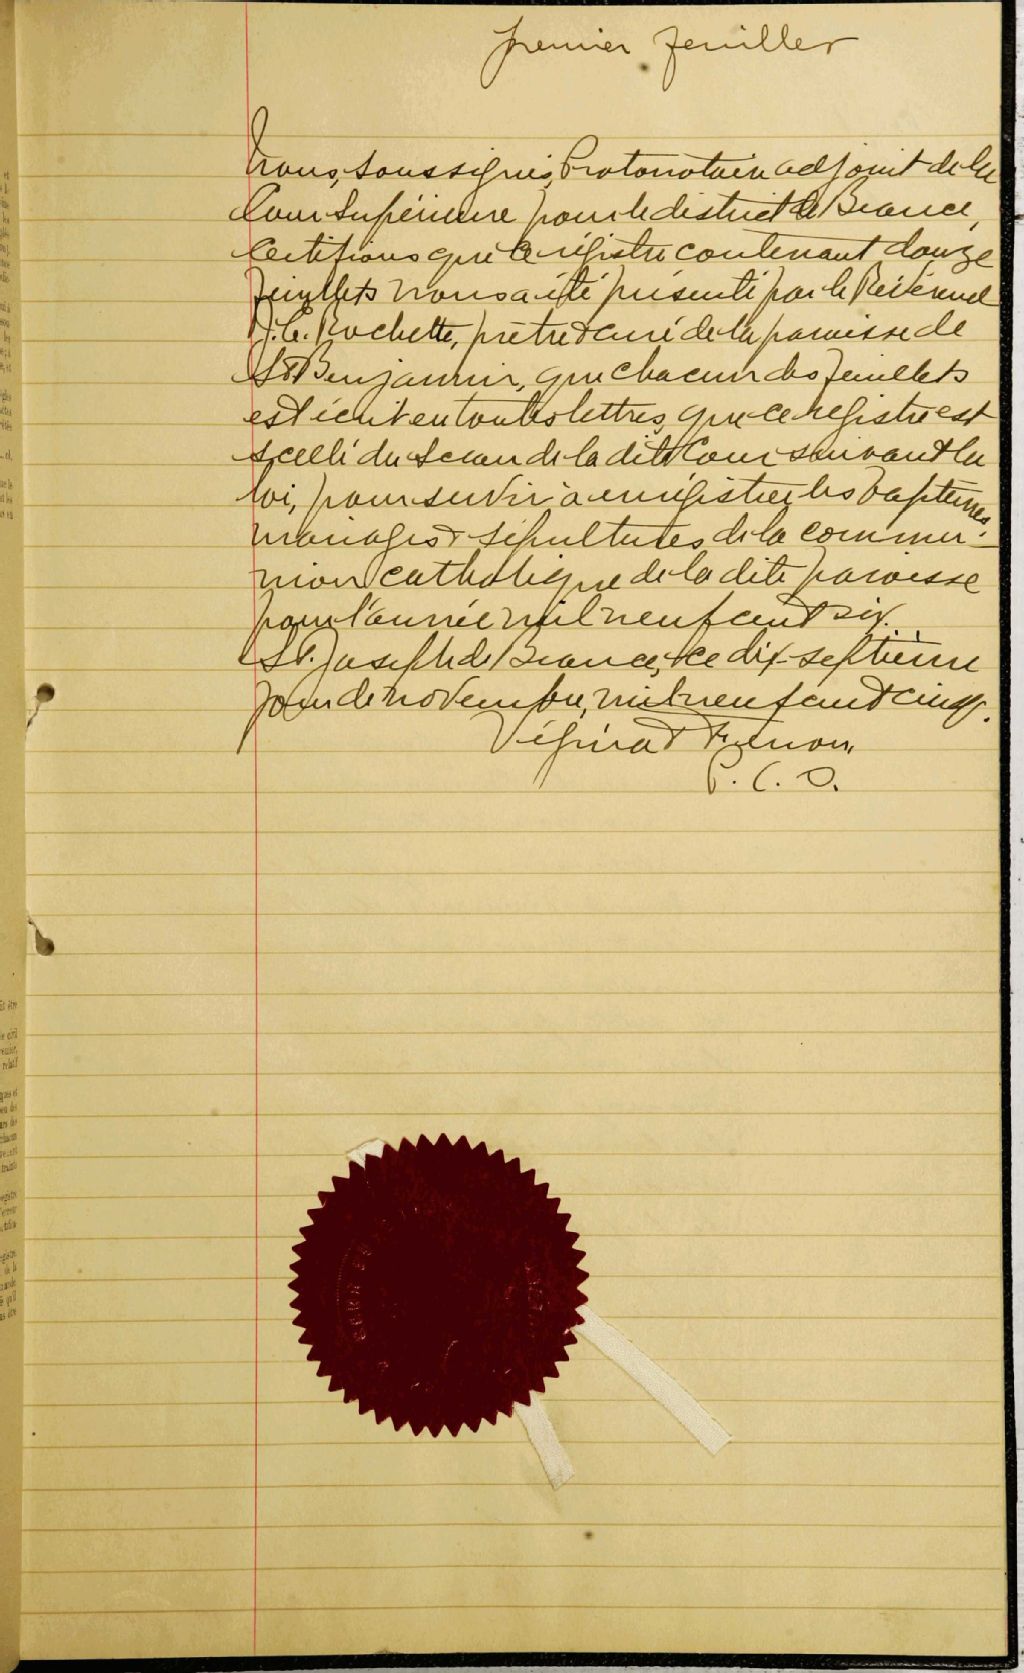 premier feuillet
Nous, soussigné, Protonotaire adjoint de la
Cour Supérieure pour le district de Beauce,
Certifions que ce régistre contenant douze
feuillets nous a été présenté par le Révérend
J. C. Rochette, prêtre & curé de la paroisse de
St Benjamin, que chacun des feuillets
est écrit en toutes lettres, que ce registre est
scellé du sceau de la dite Cour suivant la
loi, pour servir à enrégistrer les baptêmes
mariages & sépultures de la commu-
nion catholique de la dite paroisse
pour l'année mil neuf cent six.
St. Joseph de Beauce, ce dix-septième
jour de novembre, mil neuf cent cinq.
Vézina &
P. C. S.